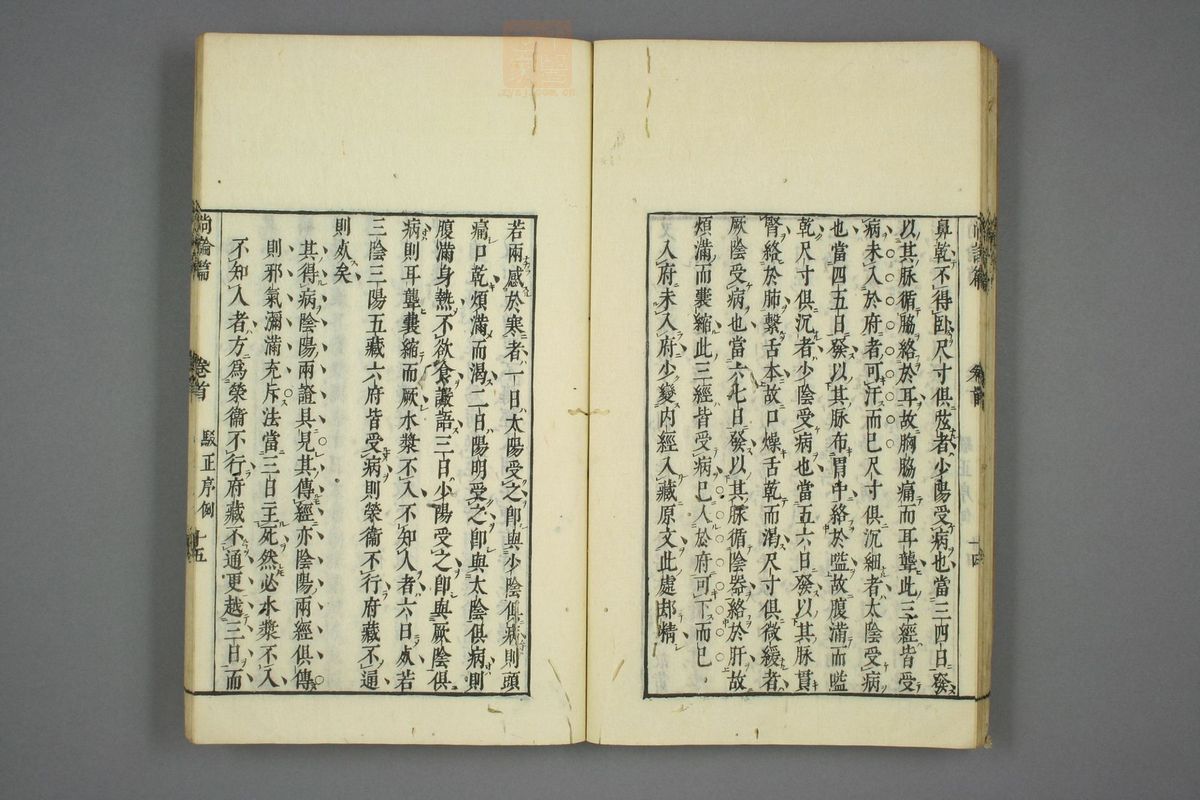 鼻乾不得臥尺寸俱弦者少陽受病也當三四日發
以其脉循脇絡於耳故胸脇痛而耳聾此三經皆受
病未入於府者可汗而已尺寸俱沉細者太陰受病
也當四五日發以其脉布胃中絡於嗌故腹滿而嗌
乾尺寸俱沉者少陰受病也當五六日發以其脉貫
腎絡於肺繫舌本故口燥舌乾而渴尺寸俱微緩者
厥陰受病也當六七日發以其脉循陰器絡於肝故
煩滿而囊縮此三經皆受病已入於府可下而已
入府未入府少變内經入藏原文此處却精
十四
若兩感於寒者一日太陽受之即與少陰俱病則頭
痛口乾煩滿而渴二日陽明受之即與太陰俱病則
腹滿身熱不欲食讝語三日少陽受之即與厥陰俱
病則耳聾囊縮而厥水漿不入不知人者六日死若
三陰三陽五藏六府皆受病則榮衞不行府藏不通
則死矣
其得病陰陽兩證具見其傳經亦陰陽兩經俱傳
則邪氣瀰滿充斥法當三日主死然必水漿不入
不知人者方為榮衞不行府藏不通更越三日而
尚論篇
卷首
駁正序例
十五